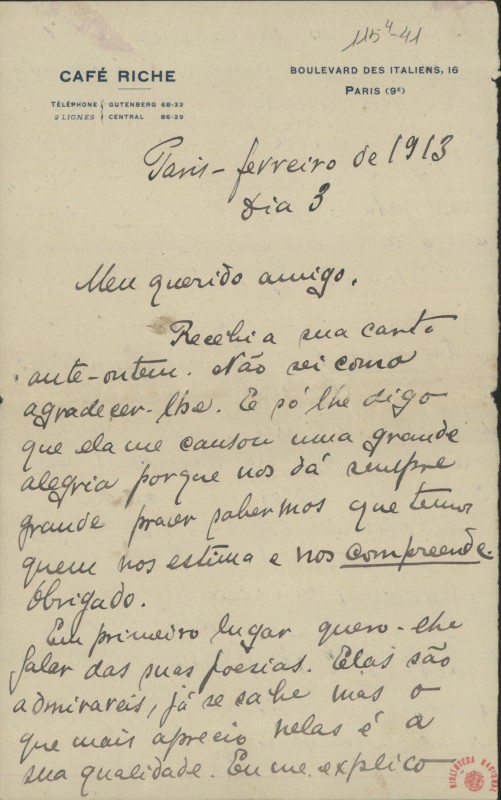 115⁴-41
CAFÉ RICHE
TÉLÉPHONE { GUTENBERG 68-33
2 LIGNES { CENTRAL 86-29
BOULEVARD DES ITALIENS, 16
PARIS (9ᵉ)
Paris - fevreiro de 1913
Dia 3
Meu querido amigo.
Recebi a sua carta
ante-ontem. Não sei como
agradecer-lhe. E só lhe digo
que ela me causou uma grande
alegria porque nos dá sempre
grande prazer sabermos que temos
quem nos estima e nos compreende.
Obrigado.
Em primeiro lugar quero-lhe
falar das suas poesias. Elas são
admiraveis, já se sabe mas o
que mais aprecio nelas é a
sua qualidade. Eu me explico
BIBLIOTECA NACIONAL